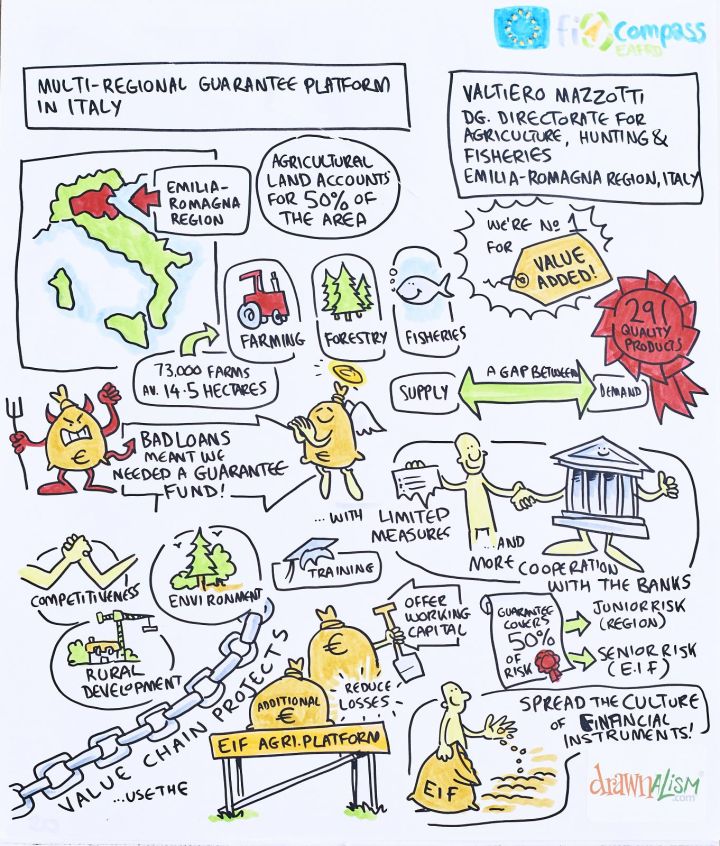 fi compass
EAFRD
MULTI-REGIONAL GUARANTEE PLATFORM
IN ITALY
VALTIERO MAZZOTTI
DG. DIRECTORATE FOR
AGRICULTURE, HUNTING &
FISHERIES
EMILIA-ROMAGNA REGION, ITALY
EMILIA-
ROMAGNA
REGION
AGRICULTURAL
LAND ACCOUNTS
FOR 50% OF
THE AREA
WE'RE No 1
FOR
VALUE
ADDED!
291
QUALITY
PRODUCTS
FARMING
FORESTRY
FISHERIES
73,000 FARMS
AV. 14.5 HECTARES
SUPPLY
A GAP BETWEEN
DEMAND
€
BAD LOANS
MEANT WE
NEEDED A GUARANTEE
FUND!
€
...WITH LIMITED
MEASURES
...AND
MORE COOPERATION
WITH THE BANKS
COMPETITIVENESS
ENVIRONMENT
TRAINING
RURAL
DEVELOPMENT
OFFER
WORKING
CAPITAL
GUARANTEE
COVERS
50%
OF
RISK
JUNIOR RISK
(REGION)
SENIOR RISK
(E.I.F)
VALUE CHAIN PROJECTS
...USE THE
€
REDUCE
LOSSES
ADDITIONAL
€
EIF AGRI.PLATFORM
EIF
SPREAD THE CULTURE
OF FINANCIAL
INSTRUMENTS!
drawnalism
.com